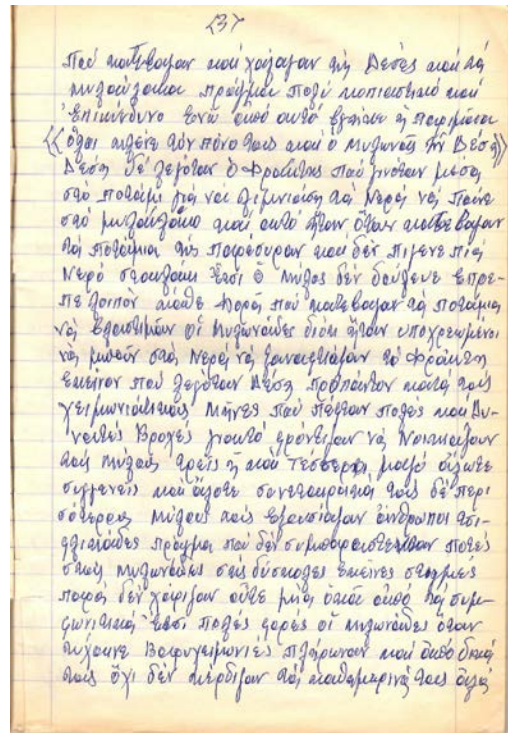 237
πού κατέβαζαν καί χάλαγαν τής Δεσές καί τά
μυλαύλακα πράγμα πολύ κοπιαστικό καί
Επικίνδυνο ενώ από αυτό βγήκε η παριμοία
<<όλοι κλένε τόν πόνο τους καί ο μυλωνάς τήν Δέση>>
Δέση δέ λεγόταν ο Φράκτης πού γινόταν μέσα
στό ποτάμι γιά νά λιμνιάση τά Νερά νά πάνε
στό μυλαύλακο καί αυτό ήταν όταν κατέβαζαν
τά ποτάμια τής παρέσυραν καί δέν πίγενε πιά
Νερό σταυλάκι Έτσι ο μύλος δέν δούλευε έπρε-
πε λοιπόν κάθε φορά πού κατέβαζαν τά ποτάμια
νά οι μυλωνάδες διότι ήταν υποχρεωμένοι
νά μπούν στά Νερά νά ξαναφτιάξουν τό Φράκτη
Εκείνον πού λεγόταν Δέση προπάντων κατά τούς
χειμωνιάτικους Μήνες πού πέφταν πολές καί Δυ-
νατές Βροχές γιαυτό φρόντιζαν νά Νοικιάζουν
τούς μύλους τρείς ή καί τέσσερεις μαζύ άλωτε
συγγενείς καί άλοτε τούς δέ περι
σότερους μύλους τούς εξουσίαζαν άνθρωποι τσι-
φλικάδες πράγμα πού δέν ποτές
στούς μυλωνάδες στίς δύσκολες Εκείνες στιγμές
παρά δέν χάριζαν ούτε μιά οκά από τά συμ-
φωνιτικά Έτσι πολές φορές οι μυλωνάδες όταν
τύχαινε Βαρυχειμωνιές πλήρωναν καί από δικά
τους όχι δέν κέρδιζαν τά καθημερινά τους αλά